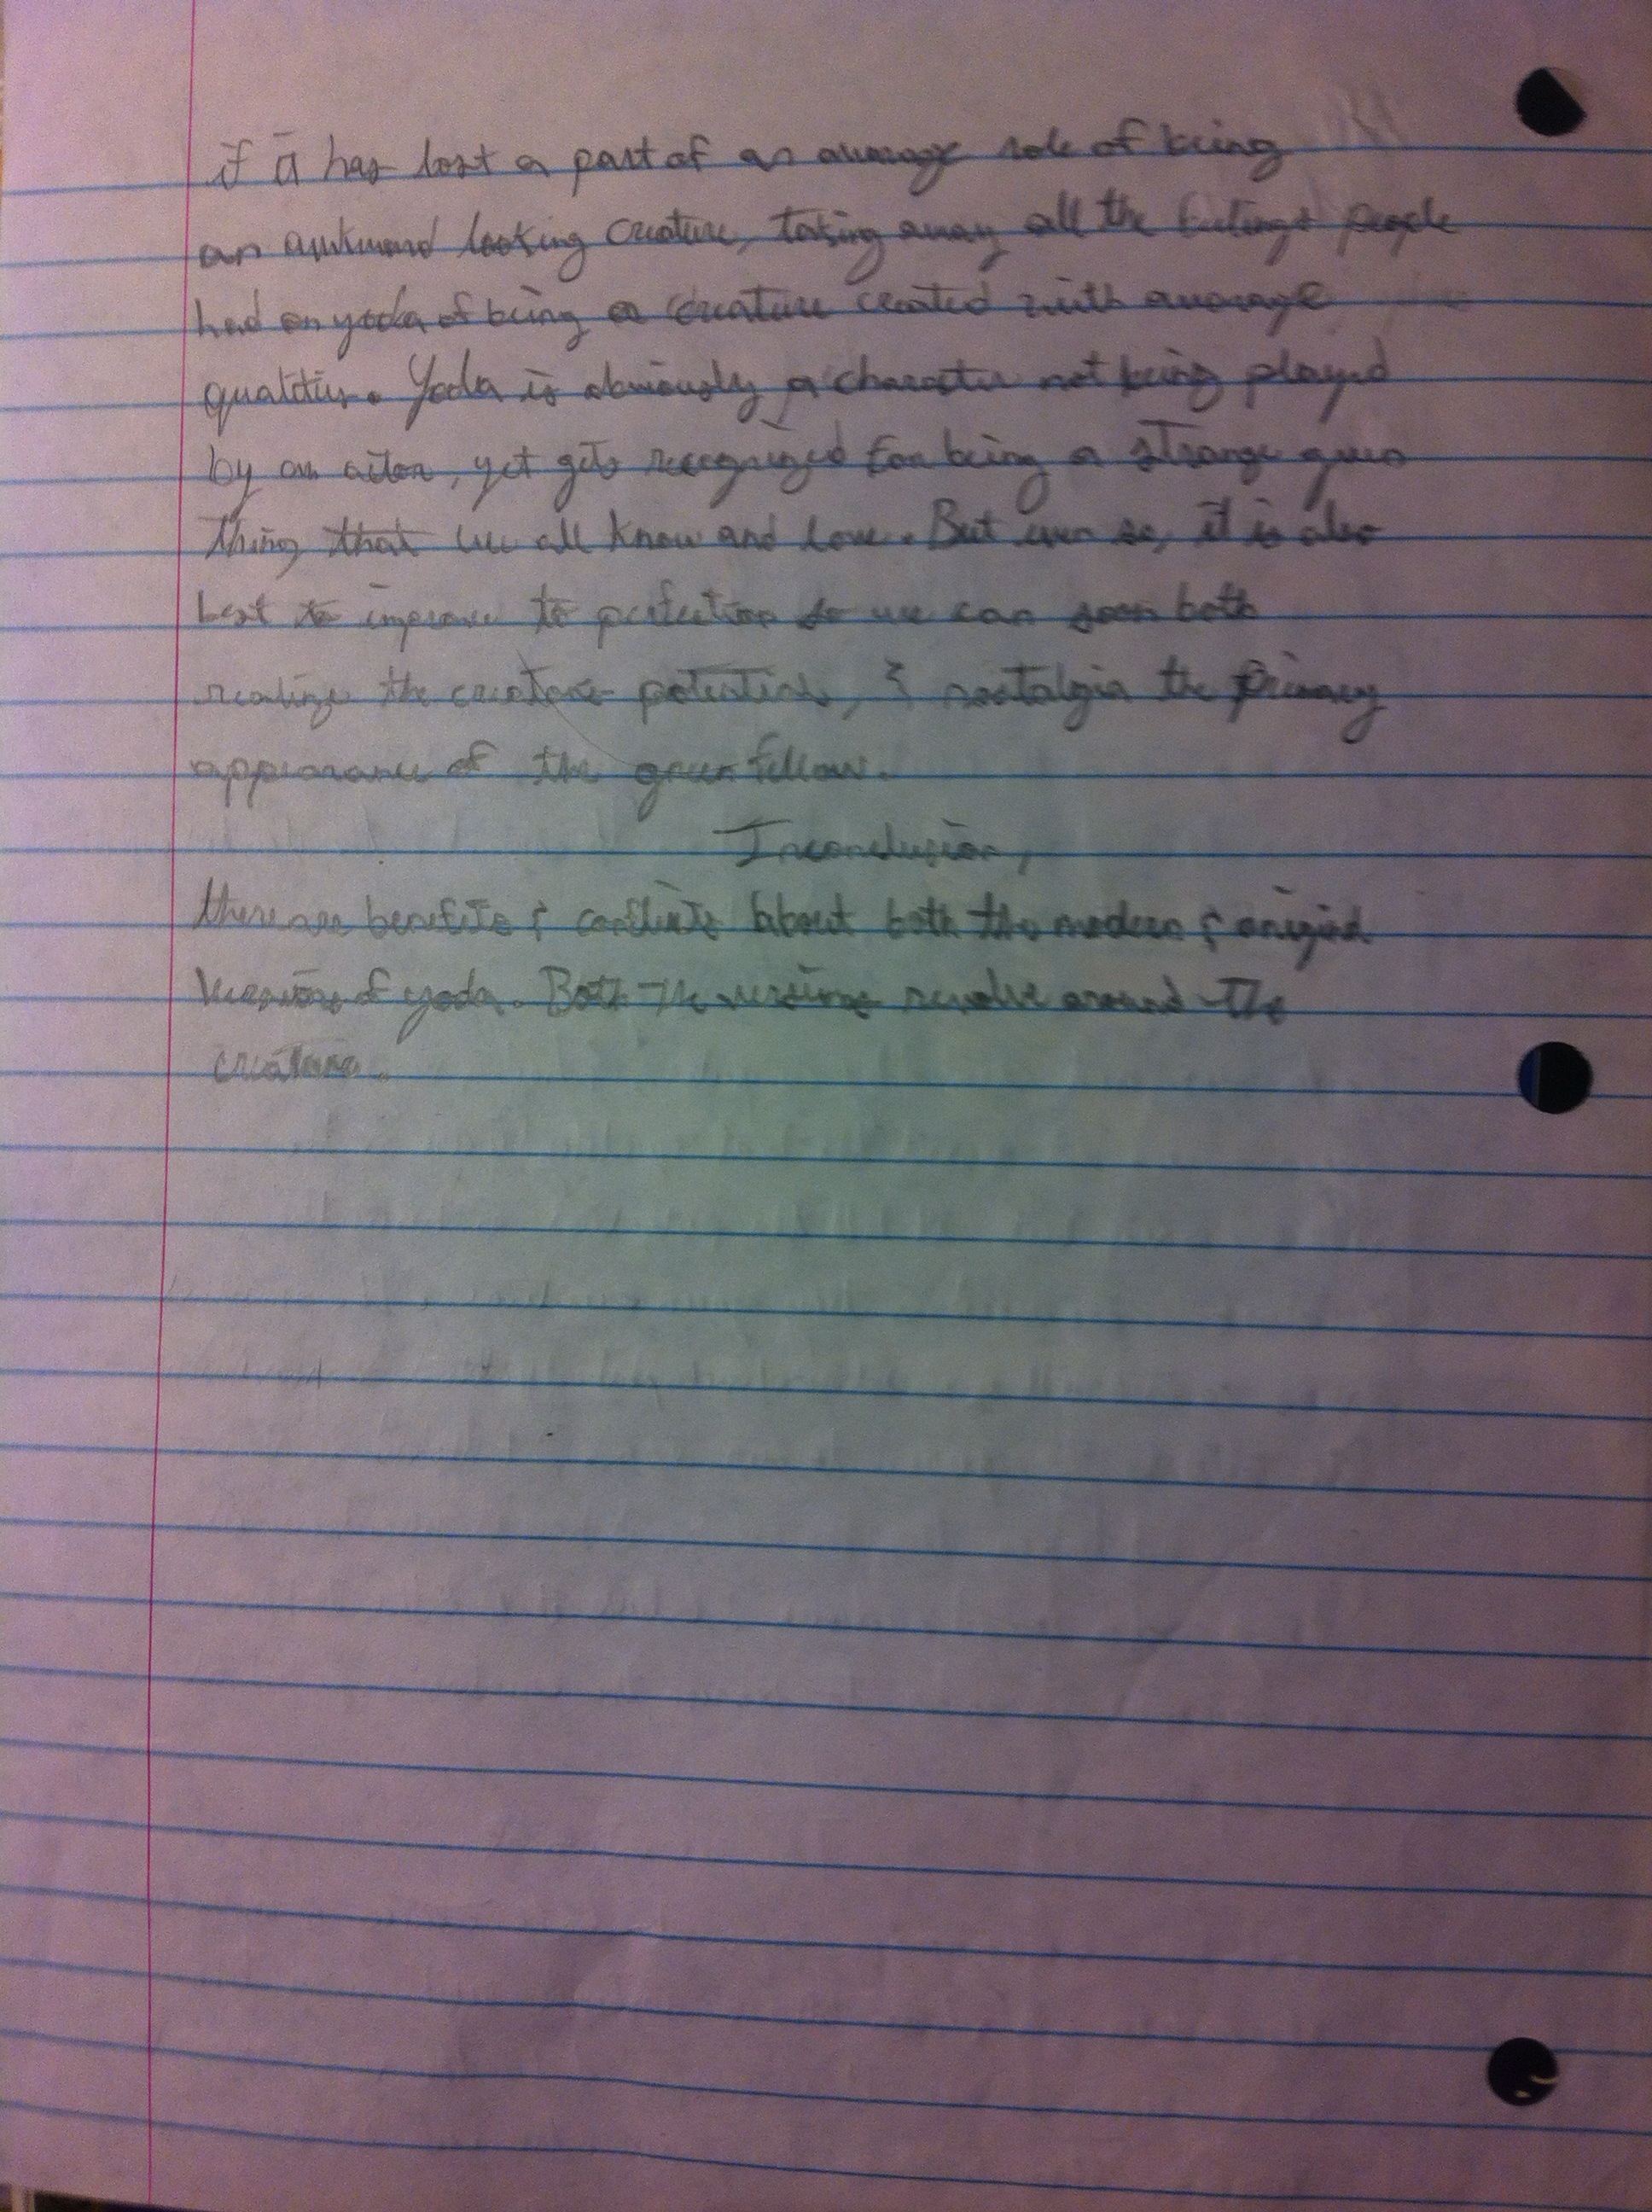 if it has lost a part of an average role of being
an awkward looking creature, taking away all the feelings people
had on yoda of being a creature created with average
qualities. Yoda is obviously a character not being played
by an actor, yet gets recognized for being a strange green
thing that we all know and love. But even so, it is also
best to improve to perfection so we can soon both
realize the creature potential, & nostalgia the primary
appearance of the green fellow.
Inconclusion,
there are benefits & conflicts about both the modern & original
versions of yoda. Both the versions revolve around the
creature.